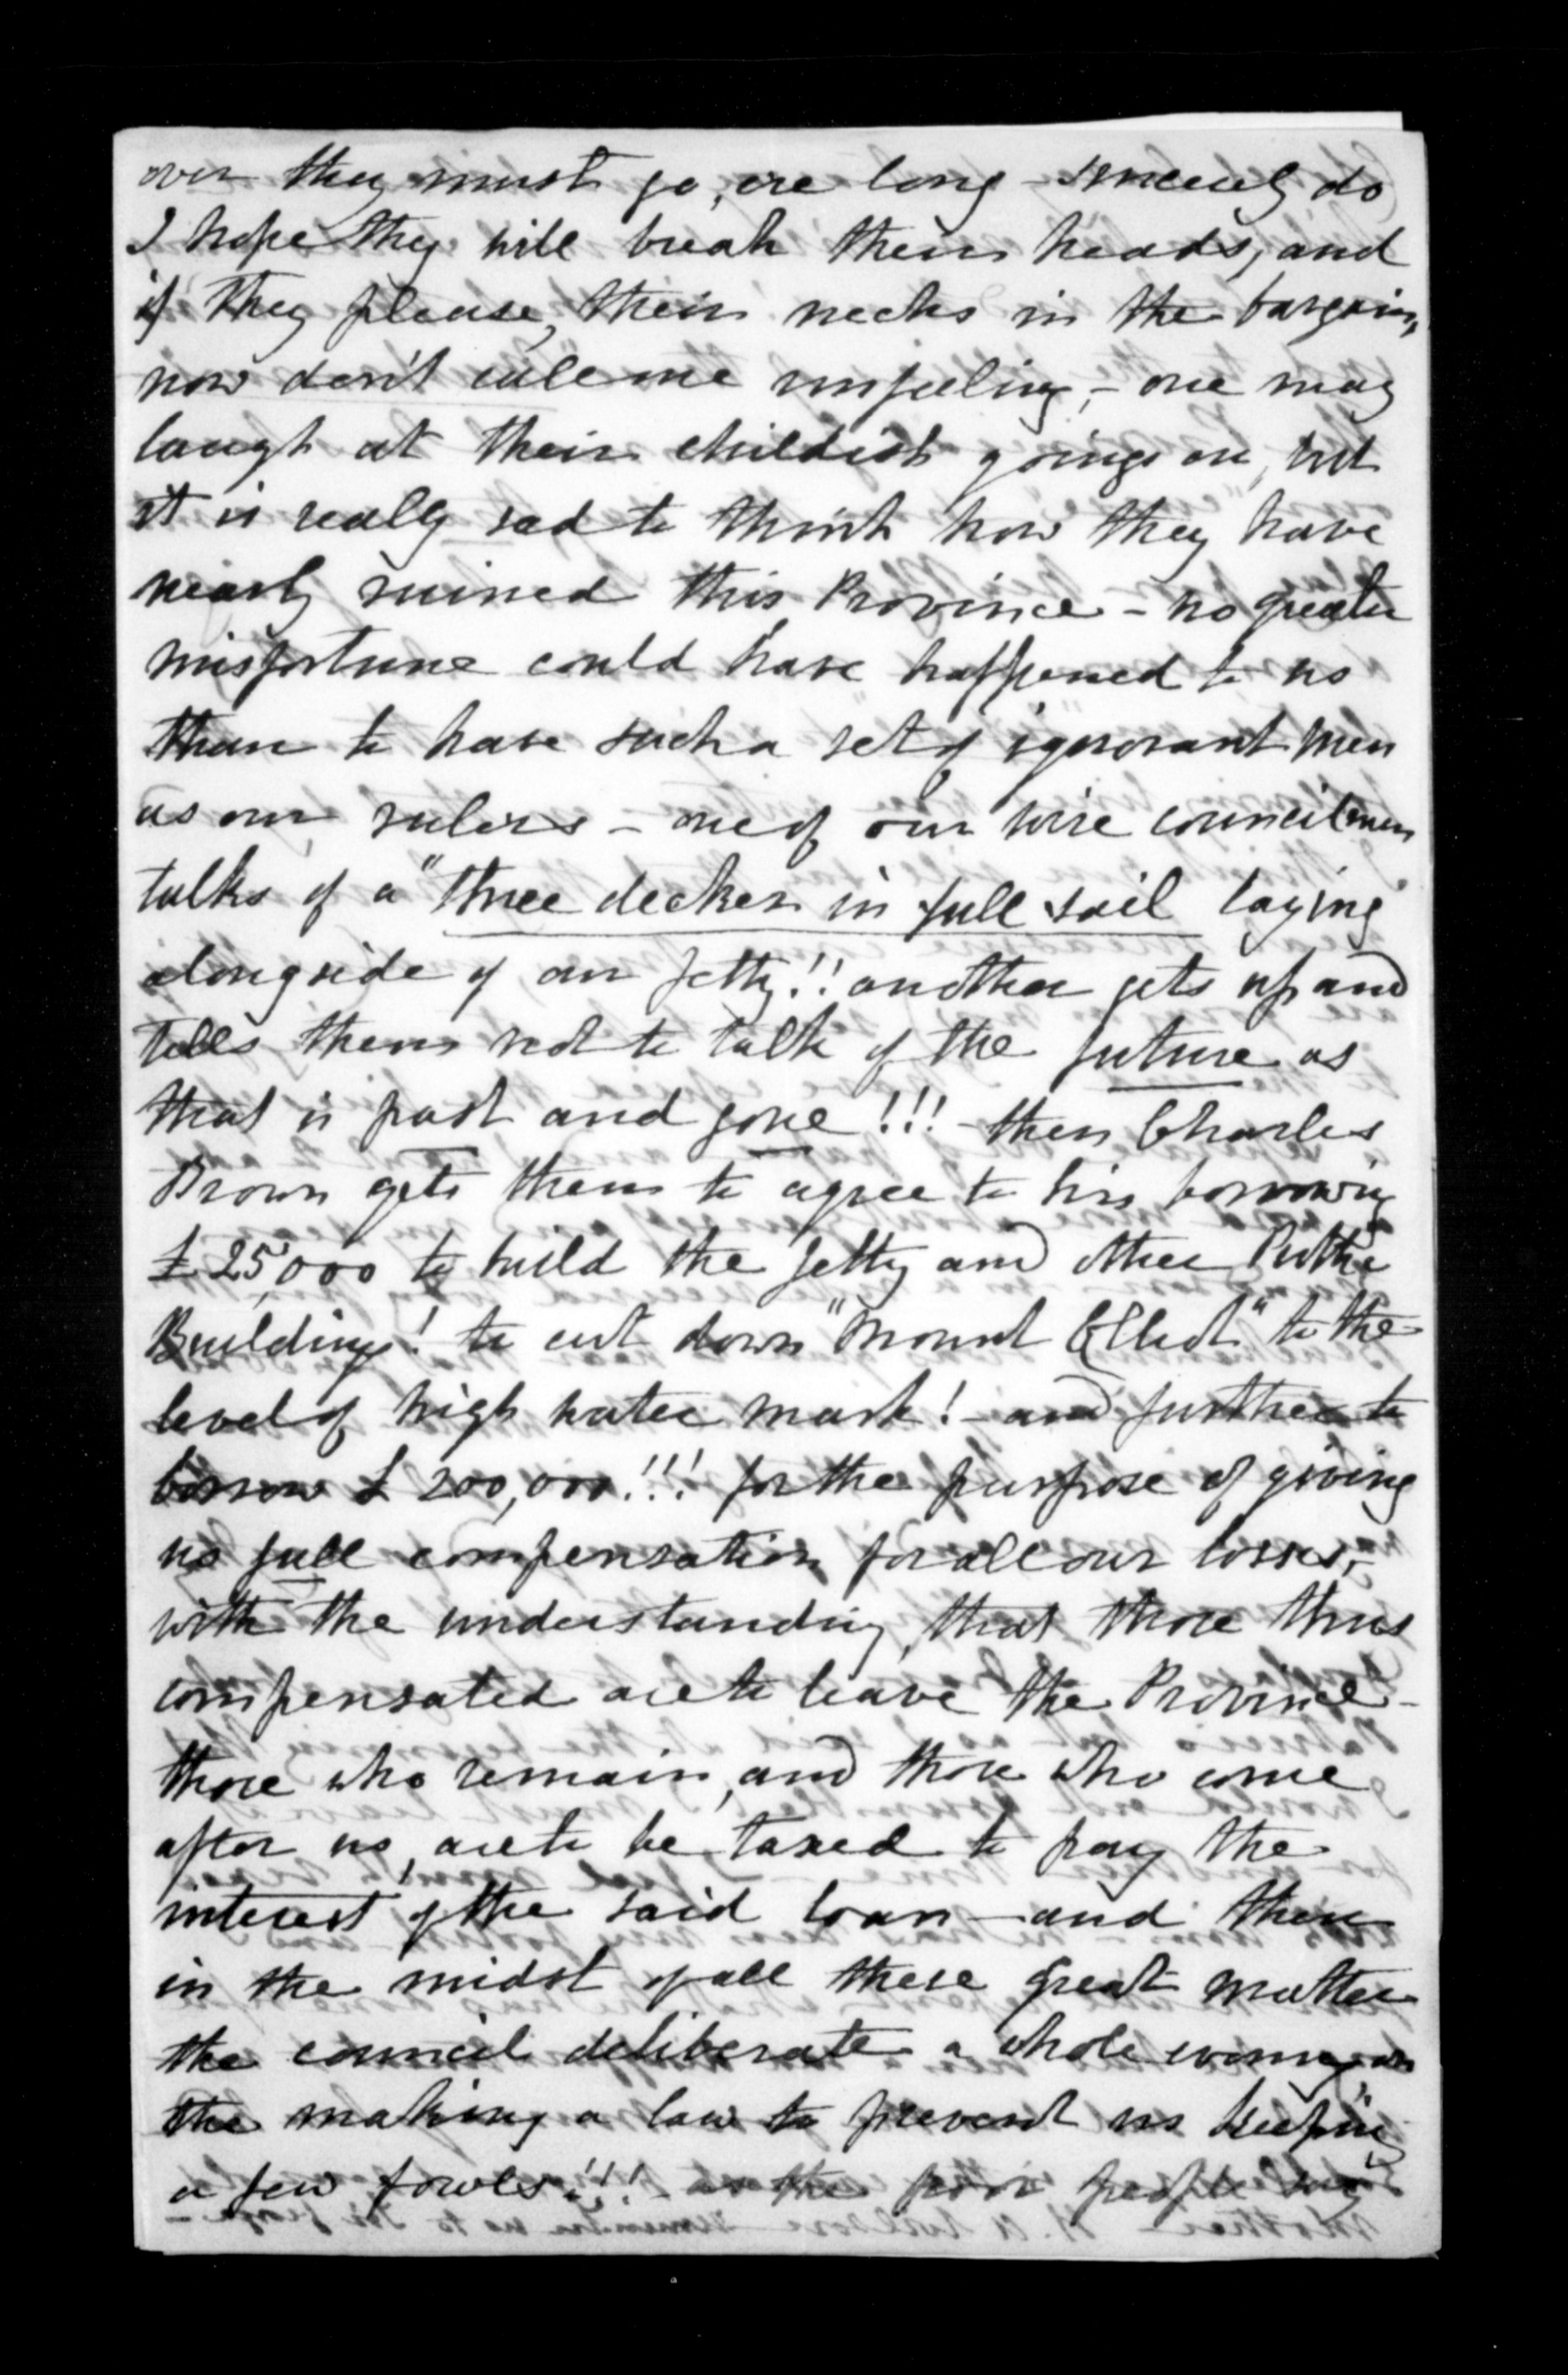 over they must go, ere long - sincerely do
I hope they will break their heads, and
if they please, their necks in the bargain,
now don't call me unfeeling, - one may
laugh at their childish goings on, but
it is really sad to think how they have
nearly ruined this Province - no greater
misfortune could have happened to us
than to have such a set of ignorant men
as our rulers - one of our wise councilmen
talks of a "three decker in full sail laying"
alongside of our jetty!! another gets up and
tells them not to talk of the future as
that is past and gone!!! - then Charles
Brown gets them to agree to his borrowing
£25,000 to build the jetty and other Public
Buildings! to cut down "Mount Elliot" to the
level of high water mark! - and further to
borrow £200,000!!! for the purpose of giving
us full compensation for all our losses, -
with the understanding, that those thus
compensated are to leave the Province -
those who remain, and those who come
after us, are to be taxed to pay the
interest of the said loan - and then
in the midst of all these great matters
the council deliberate a whole evening on
the making a law to prevent us keeping
a few fowls!!! - as the poor people